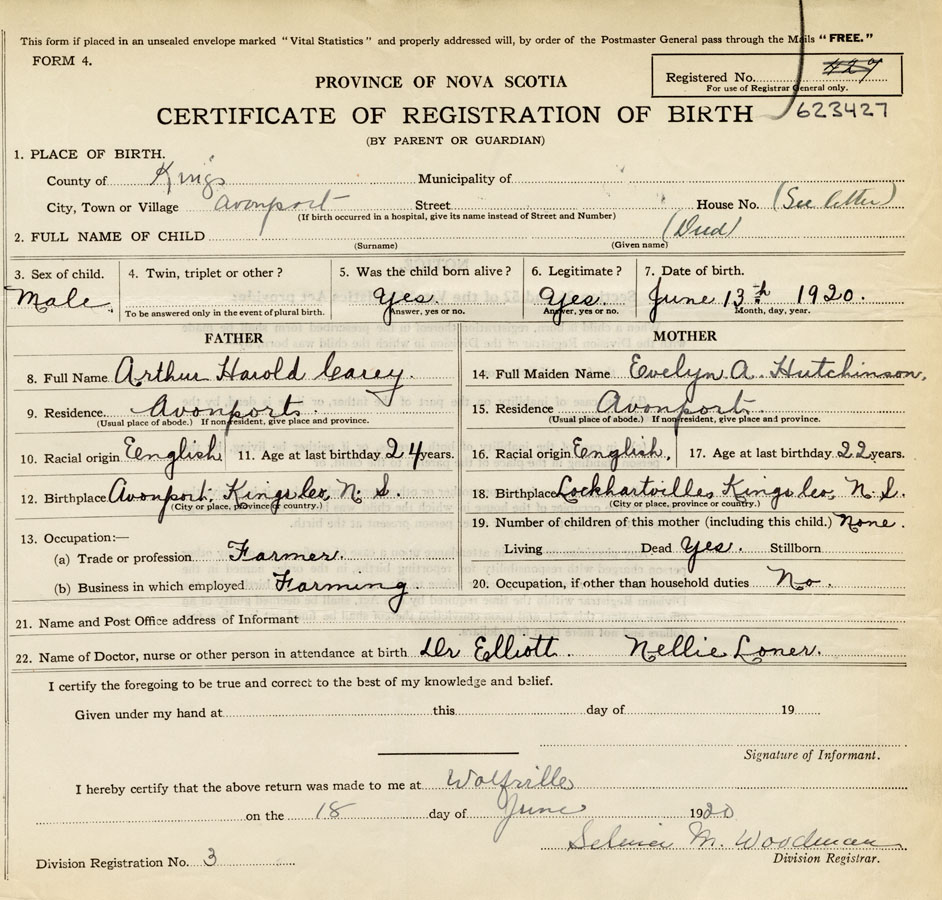 This form if placed in an unsealed envelope marked "Vital Statistics" and properly addressed will, by order of the Postmaster General pass through the Mails "FREE."
FORM 4.
PROVINCE OF NOVA SCOTIA
Registered No. 427
For use of Registrar General only.
CERTIFICATE OF REGISTRATION OF BIRTH 623427
(BY PARENT OR GUARDIAN)
1. PLACE OF BIRTH.
County of Kings Municipality of
City, Town or Village Avonport Street House No. (See letter)
(If birth occurred in a hospital, give its name instead of Street and Number)
2. FULL NAME OF CHILD (Died)
(Surname) (Given name)
3. Sex of child. 4. Twin, triplet or other? 5. Was the child born alive? 6. Legitimate? 7. Date of birth.
Male. Yes. Yes. June 13th 1920.
To be answered only in the event of plural birth. Answer, yes or no. Answer, yes or no. Month, day, year.
FATHER MOTHER
8. Full Name Arthur Harold Carey. 14. Full Maiden Name Evelyn A. Hutchinson,
9. Residence. Avonports. 15. Residence Avonport.
(Usual place of abode.) If nonresident, give place and province. (Usual place of abode.) If nonresident, give place and province.
10. Racial origin Eenglish 11. Age at last birthday 24 years. 16. Racial origin English, 17. Age at last birthday 22 years.
12. Birthplace Avonport, Kings Co, N. S. 18. Birthplace Lockhartvilles Kings Co, N. S.
(City or place, province or country.) (City or place, province or country.)
19. Number of children of this mother (including this child.) None.
13. Occupation:—
(a) Trade or profession Farmer. Living Dead Yes. Stillborn
(b) Business in which employed Farming 20. Occupation, if other than household duties No.
21. Name and Post Office address of Informant
22. Name of Doctor, nurse or other person in attendance at birth Dr Elliott. Nellie Loner.
I certify the foregoing to be true and correct to the best of my knowledge and belief.
Given under my hand at this day of 19
Signature of Informant.
I hereby certify that the above return was made to me at Wolfville
on the 18 day of June 1920
M. Woodman
Division Registration No. 3 Division Registrar.